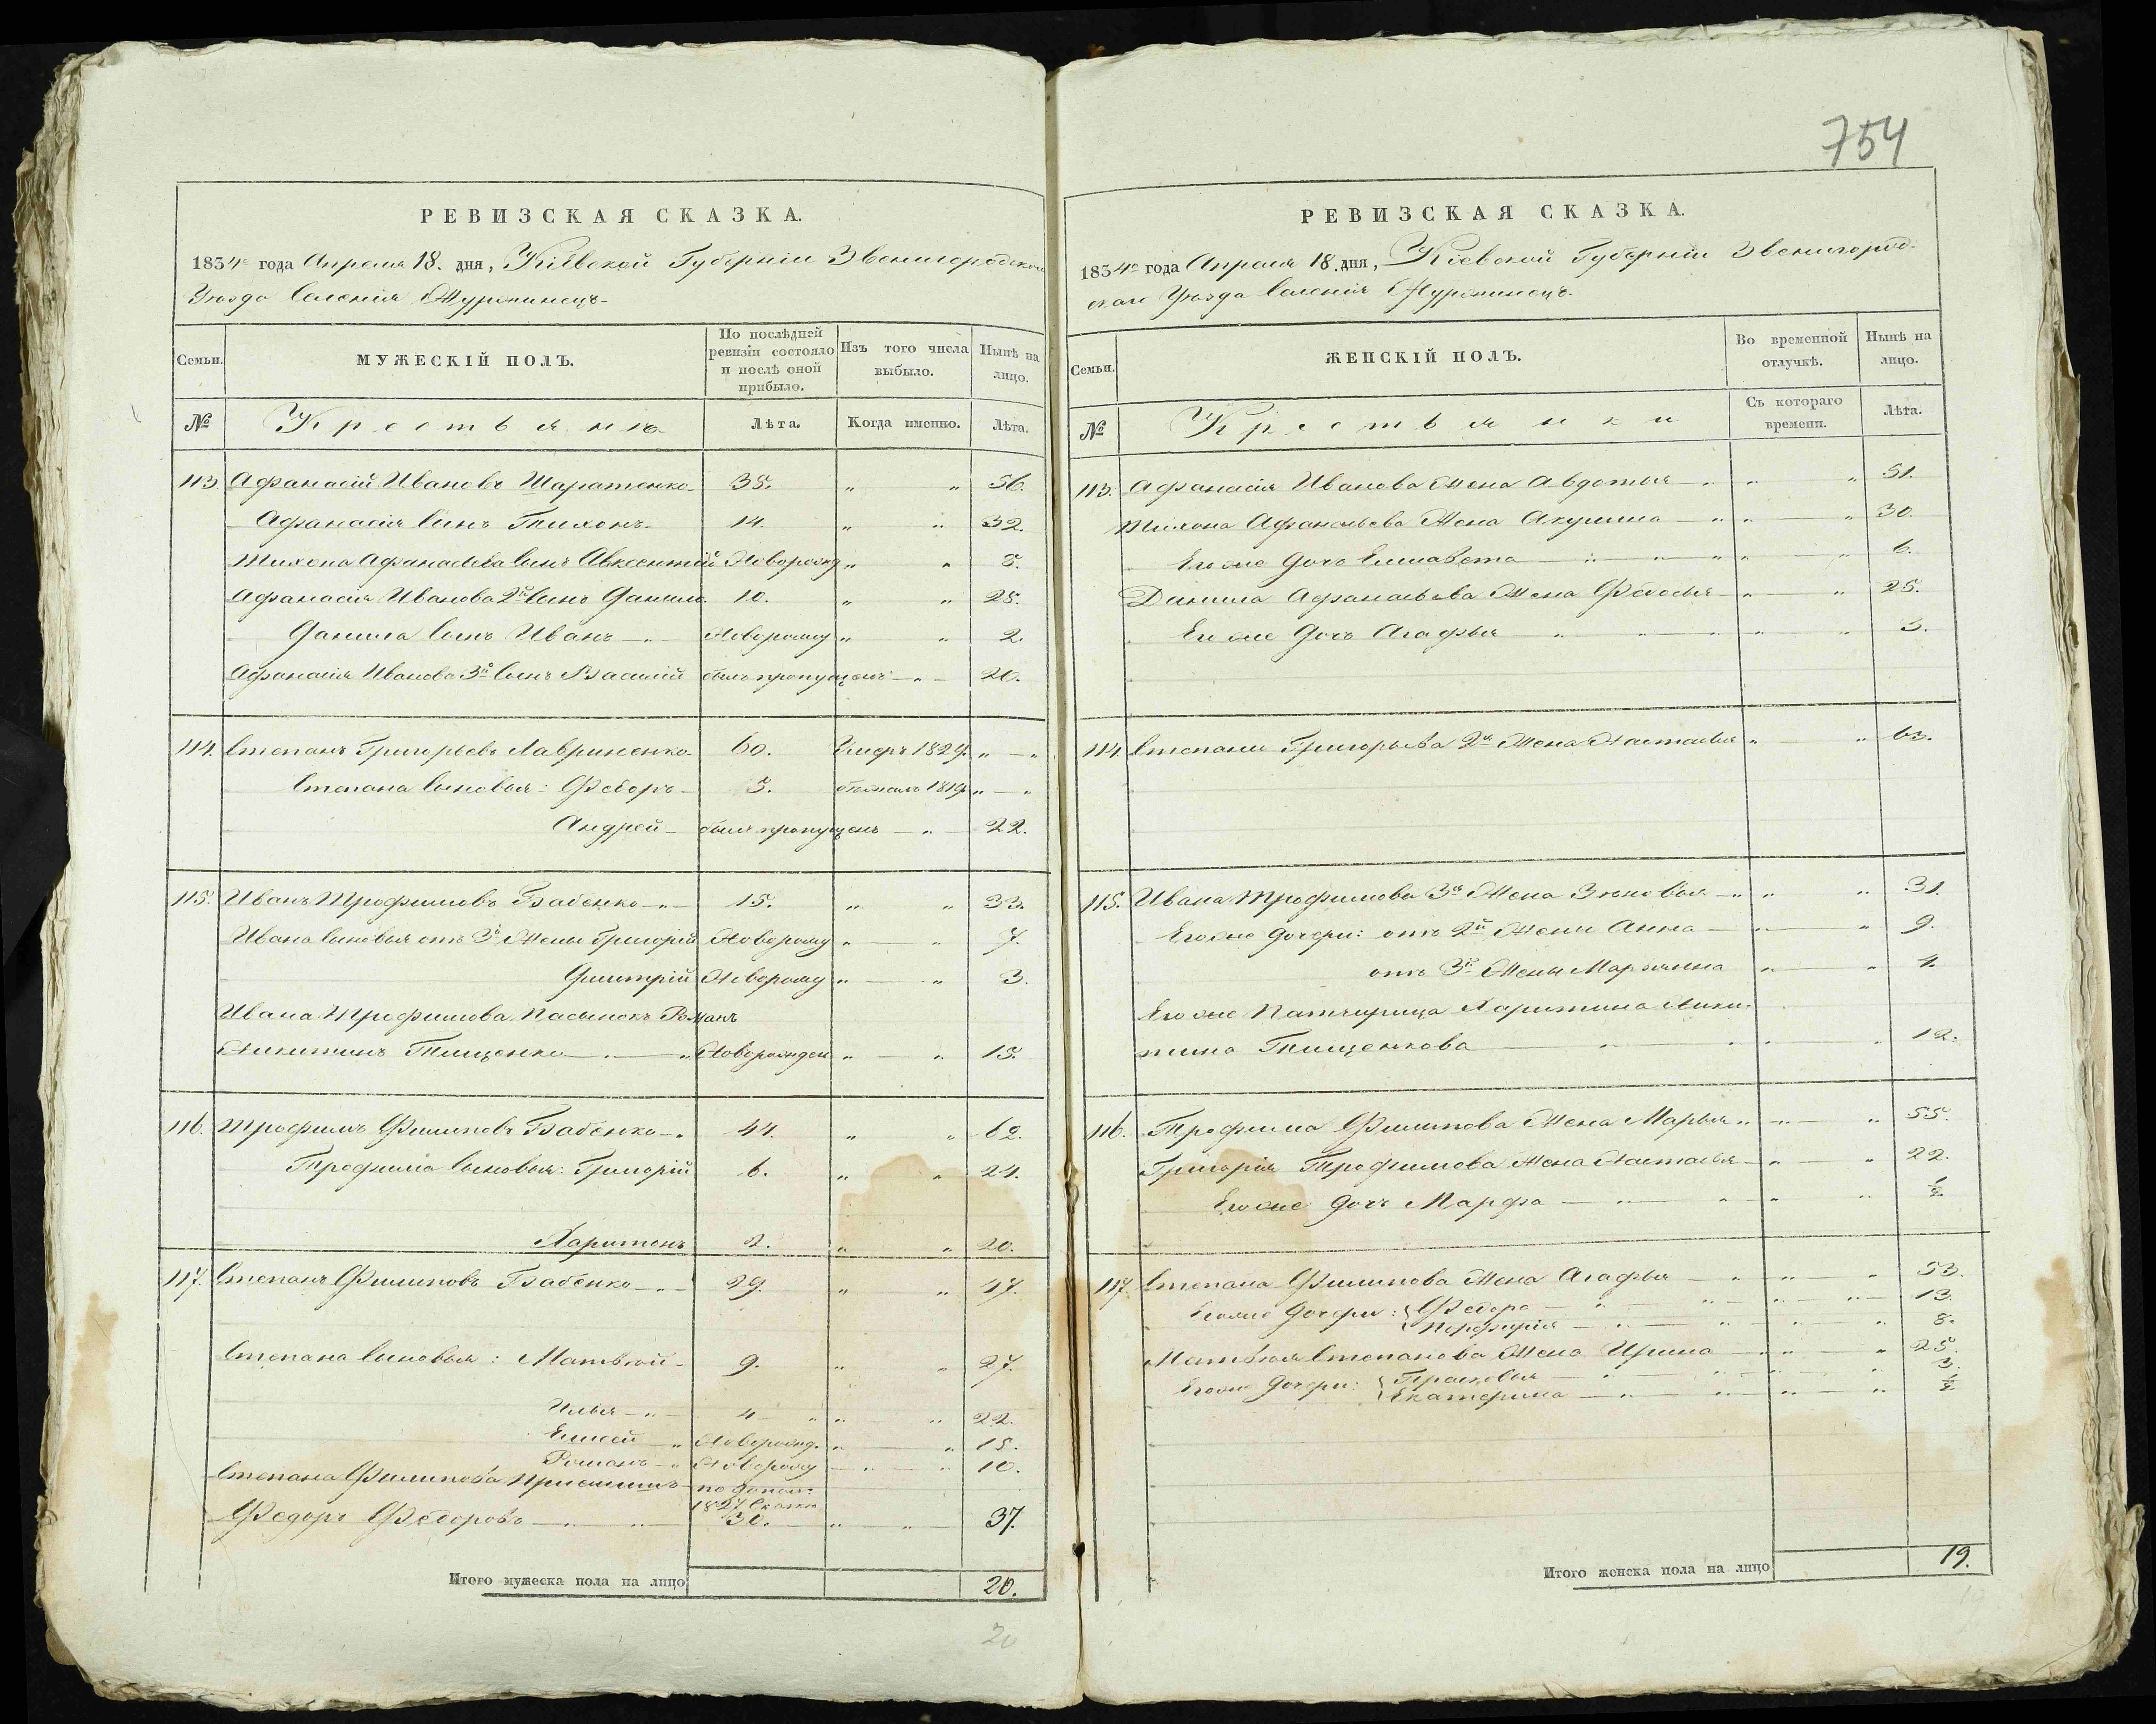 754
РЕВИЗСКАЯ СКАЗКА.
1834го года Апреля 18. дня, Кіевской Губерніи Звенигородскаго
Уѣзда Селенія Журжинецъ.
Семьи.
МУЖЕСКІЙ ПОЛЪ.
По послѣдней ревизіи состояло и послѣ оной прибыло.
Изъ того числа выбыло.
Нынѣ на лицо.
№
Крестьянъ.
Лѣта.
Когда именно.
Лѣта.
113. Афанасій Ивановъ Шаратенко 38. " " 56.
Афанасія Сынъ Тихонъ 14. " " 32.
Тихона Афанасьева Сынъ Авксентій Новорожд " " 8.
Афанасія Иванова 2й Сынъ Данило 10. " " 28.
Данила Сынъ Иванъ Новорожд " " 2.
Афанасія Иванова 3й Сынъ Василій былъ пропущенъ " 20.
114. Степанъ Григорьевъ Лавриненко 60. Умеръ 1829. " "
Степана Сыновья: Федоръ 5. бѣжалъ 1819 " "
Андрей былъ пропущенъ " 22.
115. Иванъ Трофимовъ Бабенко 15. " " 33.
Ивана Сыновья отъ 3й Жены Григорій Новорожд " " 7.
Дмитрій Новорожд " " 3.
Ивана Трофимова Пасынокъ Романъ
Никитинъ Тищенко Новорожден " " 15.
116. Трофимъ Филиповъ Бабенко 44. " " 62.
Трофима Сыновья: Григорій 6. " " 24.
Харитонъ 2. " " 20.
117. Степанъ Филиповъ Бабенко 29. " " 47.
Степана Сыновья: Матвѣй 9. " " 27.
Илья 4 " " 22.
Елисей Новорожд. " " 15.
Романъ Новорожд " " 10.
Степана Филипова Приемышъ по допол:
1827 Сказки
Федоръ Федоровъ 30. " " 37.
Итого мужеска пола на лицо 20.
20
РЕВИЗСКАЯ СКАЗКА.
1834го года Апреля 18. дня, Кіевской Губерніи Звенигород-
скаго Уѣзда Селенія Журжинецъ.
Семьи.
ЖЕНСКІЙ ПОЛЪ.
Во временной отлучкѣ.
Нынѣ на лицо.
№
Крестьянки
Съ котораго времени.
Лѣта.
113. Афанасія Иванова Жена Авдотья " " 51.
Тихона Афанасьева Жена Акулина " " 30.
Его же дочь Елисавета " " 6.
Данила Афанасьева Жена Федосья " " 25.
Его же дочь Агафья " " 3.
114. Степана Григорьева 2я Жена Настасья " " 63.
115. Ивана Трофимова 3я Жена Зѣновья " " 31.
Его же дочери: отъ 2й Жены Анна " " 9.
отъ 3й Жены Марьянна " " 4.
Его же Патчирица Харитина Ники-
тина Тищенкова " " 12.
116. Трофима Филипова Жена Марья " " 55.
Григорія Трофимова Жена Настасья " " 22.
Его же дочь Марфа " " ½.
117. Степана Филипова Жена Агафья " " 53.
Его же дочери: Федора " " 13.
Порфирія " " 8.
Матвѣя Степанова Жена Ирина " " 25.
Его же дочери: Прасковья " " 3.
Екатерина " " ½
Итого женска пола на лицо 19.